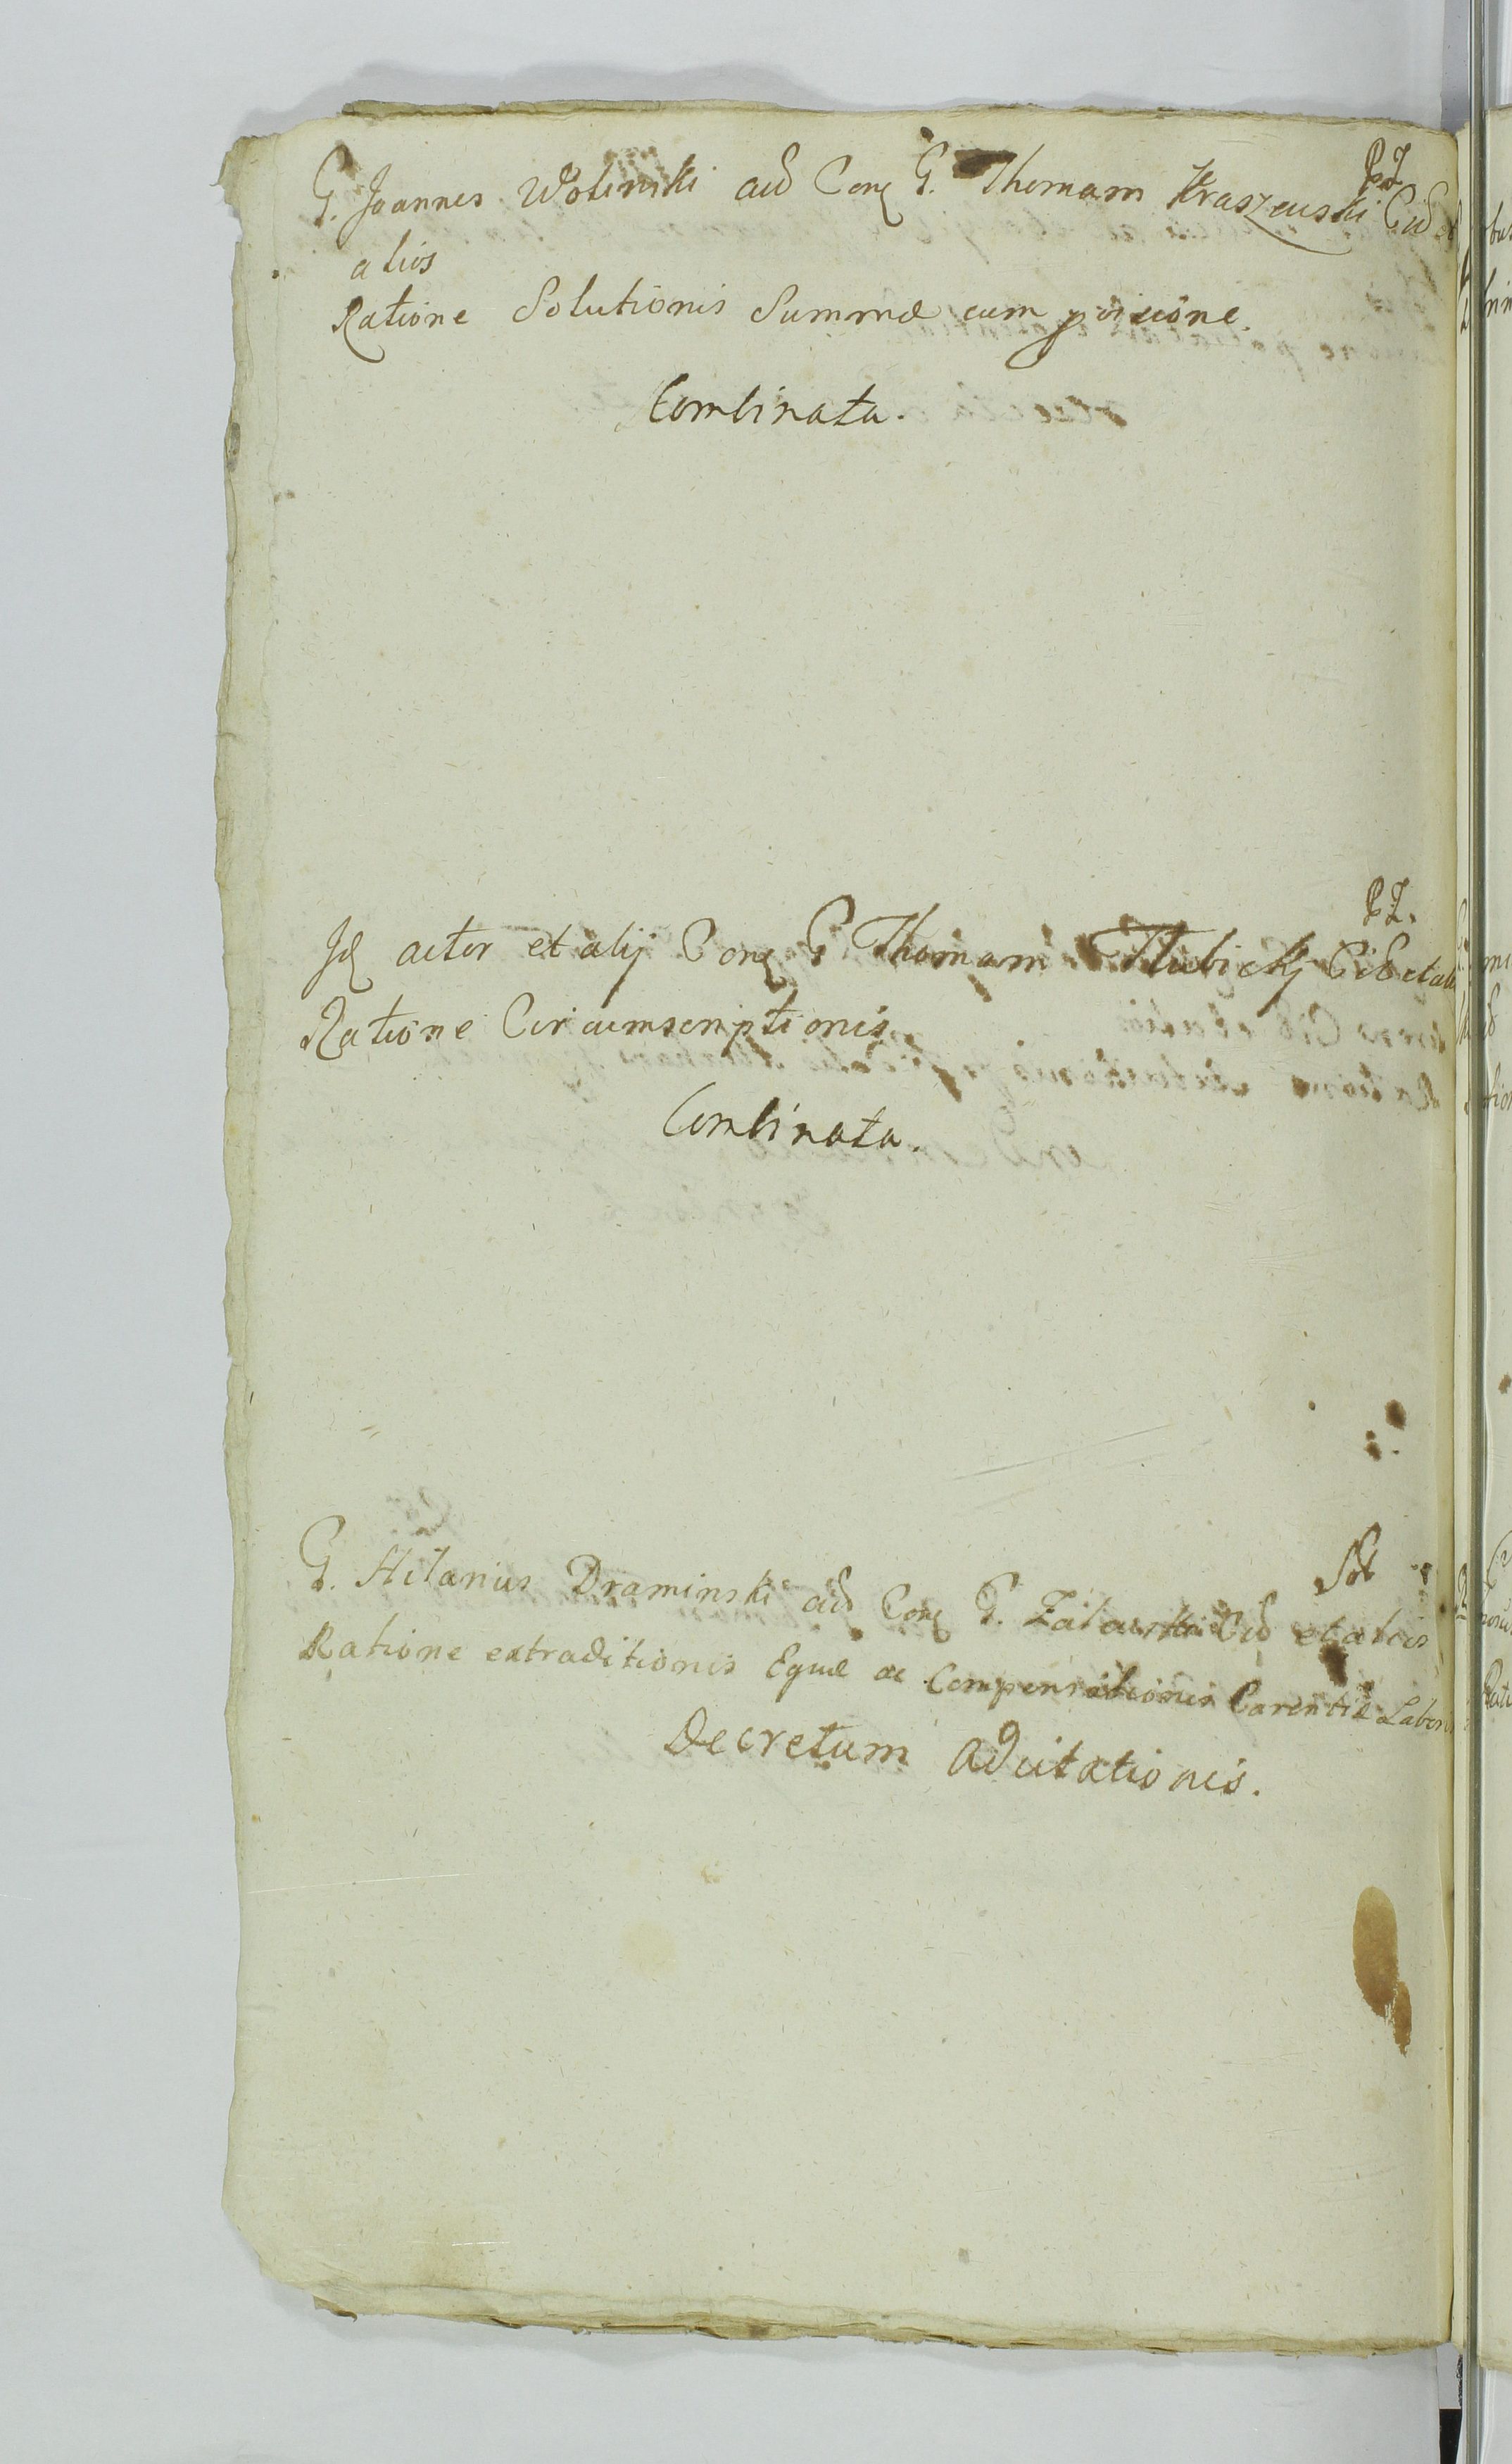 G. Joannes Wolinski ad Con G. Thomam Kraszewski Cid et
alios
Ratione Solutionis Summæ cum
Combinata.
PZ.
Id actor et alij Con G Thomam Hubickj Cid et ali
Ratione Circumscriptionis
Combinata.
G. Hilarius Draminski ad Con G. Zalawski Cid et alios
Ratione extraditionis Equæ ac Compensationis Carentiæ Labor
Decretum adcitationis.